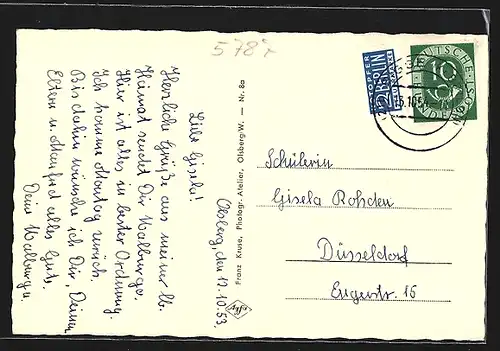 578r
Olsberg, den 12.10.53.
Liebe Gisela!
Herzliche Grüße aus meiner lb.
Heimat sendet Dir Walburga.
Hier ist alles in bester Ordnung.
Ich komme Montag zurück.
Bis dahin wünsche ich Dir, Deinen
Eltern u. Manfred alles Gute.
Deine Walburga
Franz Kruse, Photogr. Atelier, Olsberg/W. — Nr. 8a
Agfa
NOTOPFER
2 BERLIN
STEUERMARKE
DEUTSCHE BUNDESPOST
10
Schülerin
Gisela Rohden
Düsseldorf
Eugenstr. 16